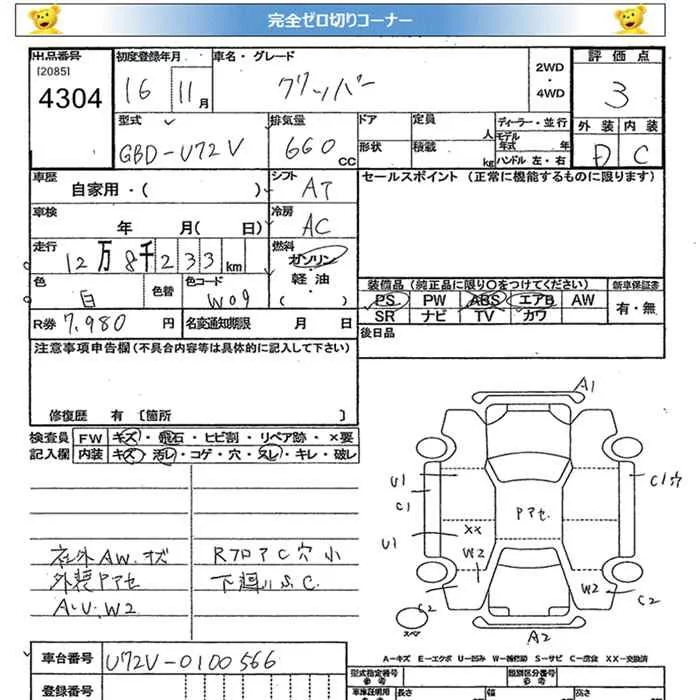 完全ゼロ切りコーナー
出品番号 初度登録年月 車名・グレード 評価点
[2085]
4304 16 11月 クリッパー 2WD・4WD 3
型式 排気量 ドア 定員 人 ディーラー・並行 外装 内装
GBD-U72V 660CC 形状 積載 kg モデル年式 年 ハンドル 左・右 D C
車歴 自家用・( ) シフト AT セールスポイント (正常に機能するものに限ります)
車検 年 月( 日) 冷房 AC
走行 12万8千233km 燃料 ガソリン・軽油・( )
色 白 色替 色コード W09 装備品(純正品に限り○をつけてください) 新車保証書
PS PW ABS エアB AW 有・無
SR ナビ TV カワ
R券 7,980円 名変通知期限 月 日 後日品
注意事項申告欄(不具合内容等は具体的に記入して下さい)
修復歴 有 〔箇所 〕
検査員 FW キズ・飛石・ヒビ割・リペア跡・×要
記入欄 内装 キズ・汚レ・コゲ・穴・スレ・キレ・破レ
社外AW.キズ RフロアC穴小
外装Pアセ 下廻りS.C.
A.U.W2
A1
U1 C1 C1穴
Pアセ
U1 XX
W2 W2
C2 C2
スペア
A2
A-キズ E-エクボ U-凹み W-補修跡 S-サビ C-腐食 XX-交換済
車台番号 U72V-0100566 型式指定番号 類別区分番号
参考 参考
登録番号 車検証明用 長さ 幅 高さ